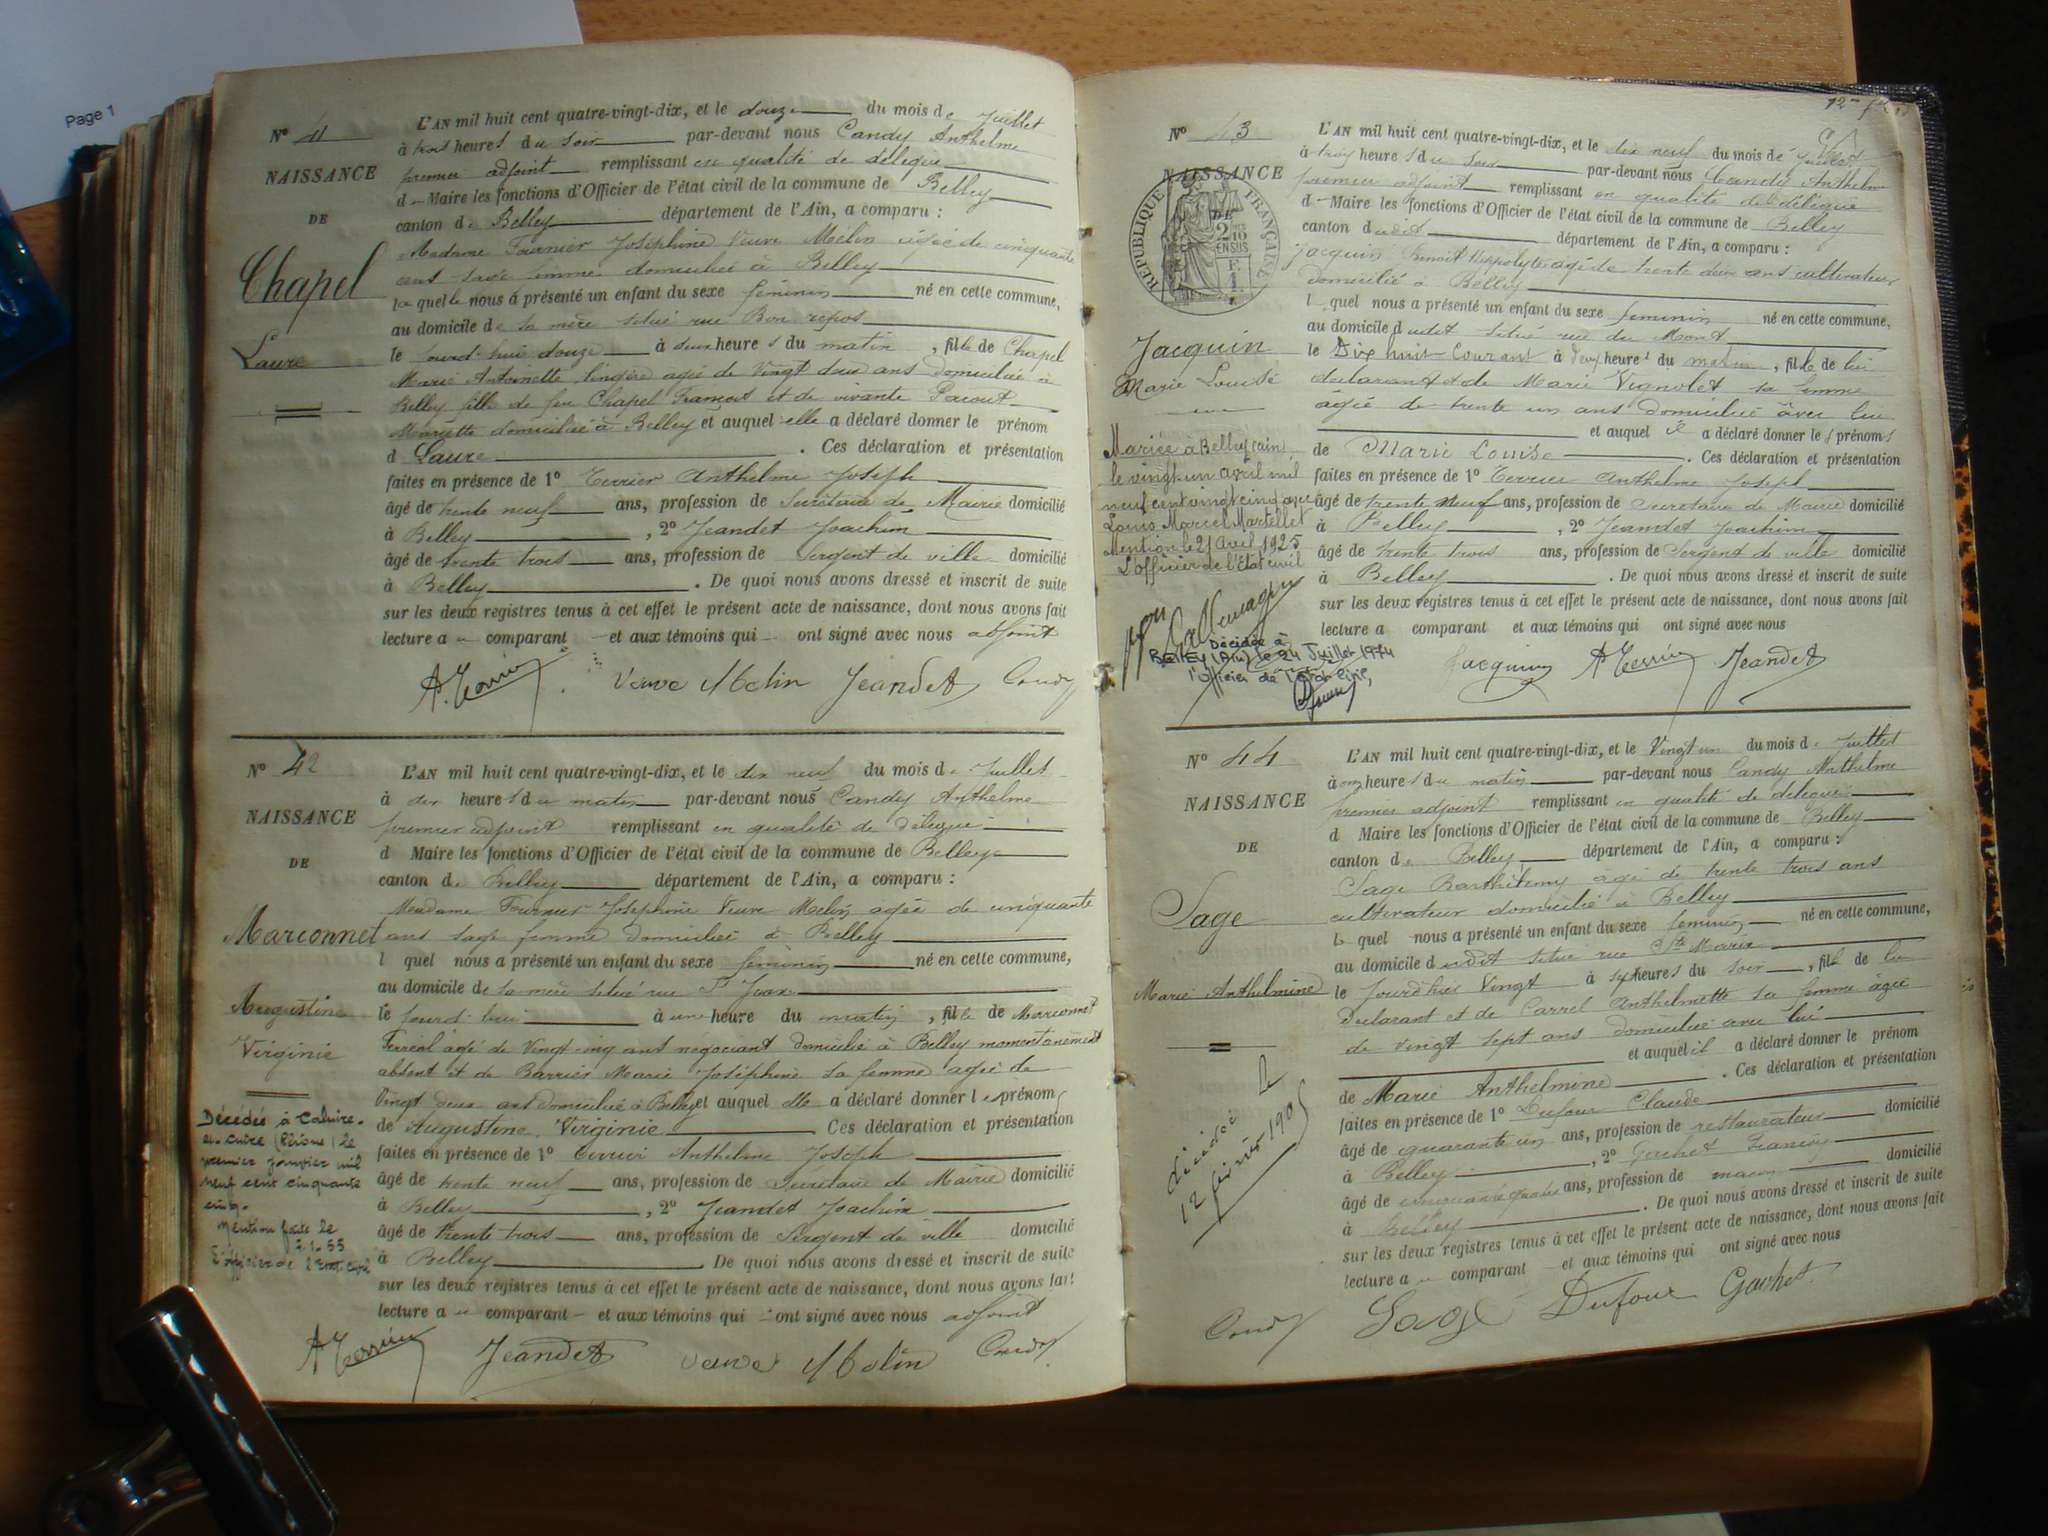 Page 1
L'AN mil huit cent quatre-vingt-dix, et le douze du mois de Juillet
N° 41
à trois heures du soir par-devant nous Candy Anthelme
premier adjoint remplissant en qualité de délégué
NAISSANCE
d Maire les fonctions d'Officier de l'état civil de la commune de Belley
DE
canton de Belley département de l'Ain, a comparu :
Madame Fournier Joséphine Veuve Mélin âgée de cinquante
Chapel
ans sage femme domiciliée à Belley
la quelle nous a présenté un enfant du sexe féminin né en cette commune,
au domicile de sa mère situé rue Bon repos
Laure
le jourd'hui douze à deux heures du matin, fille de Chapel
Marie Antoinette, lingère agée de Vingt deux ans domiciliée à
Belley fille de feu Chapel et de vivante
Mariette domiciliée à Belley et auquel elle a déclaré donner le prénom
d Laure. Ces déclaration et présentation
faites en présence de 1° Terrier Anthelme Joseph
âgé de trente neuf ans, profession de Secrétaire de Mairie domicilié
à Belley, 2° Jeandet Joachim
âgé de trente trois ans, profession de Sergent de ville domicilié
à Belley. De quoi nous avons dressé et inscrit de suite
sur les deux registres tenus à cet effet le présent acte de naissance, dont nous avons fait
lecture a u comparant et aux témoins qui ont signé avec nous adjoint
A. Terrier Veuve Melin Jeandet Candy
N° 42
L'AN mil huit cent quatre-vingt-dix, et le dix neuf du mois de Juillet
à dix heures du matin par-devant nous Candy Anthelme
NAISSANCE
premier adjoint remplissant en qualité de délégué
d Maire les fonctions d'Officier de l'état civil de la commune de Belley
DE
canton de Belley département de l'Ain, a comparu :
Madame Fournier Joséphine Veuve Melin agée de cinquante
Marconnet
ans sage femme domiciliée à Belley
l quel nous a présenté un enfant du sexe féminin né en cette commune,
au domicile de sa mère situé rue St Jean
Augustine
le jourd'hui à une heure du matin, fille de Marconnet
Virginie
Ferréol agé de Vingt cinq ans negociant domicilié à Belley momentanément
absent et de Barrier Marie Joséphine sa femme agée de
Vingt deux ans domiciliée à Belley et auquel elle a déclaré donner les prénoms
de Augustine Virginie Ces déclaration et présentation
faites en présence de 1° Terrier Anthelme Joseph
âgé de trente neuf ans, profession de Secrétaire de Mairie domicilié
à Belley, 2° Jeandet Joachim
âgé de trente trois ans, profession de Sergent de ville domicilié
à Belley De quoi nous avons dressé et inscrit de suite
sur les deux registres tenus à cet effet le présent acte de naissance, dont nous avons fait
lecture a u comparant et aux témoins qui ont signé avec nous adjoint
Décédée à Caluire-
et-Cuire (Rhône) le
premier janvier mil
neuf cent cinquante
cinq.
Mention faite le
7.1.55
L'officier de l'Etat civil
A Terrier Jeandet veuve Melin Candy
N° 43
L'AN mil huit cent quatre-vingt-dix, et le dix neuf du mois de Juillet
à trois heures du soir par-devant nous Candy Anthelme
NAISSANCE
premier adjoint remplissant en qualité de délégué
DE
d Maire les fonctions d'Officier de l'état civil de la commune de Belley
RÉPUBLIQUE FRANÇAISE
2 10
EN SUS
canton dudit département de l'Ain, a comparu :
Jacquin Benoit Hippolyte agé de trente deux ans cultivateur
domicilié à Belley
l quel nous a présenté un enfant du sexe feminin né en cette commune,
au domicile dudit situé rue du Mont
Jacquin
le Dix huit Courant à deux heures du matin, fille de lui
Marie Louise
déclarant et de Marie Vignolet sa femme
agée de trente un ans domiciliée avec lui
et auquel il a déclaré donner les prénoms
de Marie Louise. Ces déclaration et présentation
faites en présence de 1° Terrier Anthelme Joseph
âgé de trente neuf ans, profession de Secrétaire de Mairie domicilié
à Belley, 2° Jeandet Joachim
âgé de trente trois ans, profession de Sergent de ville domicilié
à Belley. De quoi nous avons dressé et inscrit de suite
sur les deux registres tenus à cet effet le présent acte de naissance, dont nous avons fait
lecture a comparant et aux témoins qui ont signé avec nous
Mariée à Belley (ain)
le vingt un avril mil
neuf cent vingt cinq avec
Louis Marcel Martellet
Mention le 21 Avril 1925
L'officier de l'état civil
Décédée à
BELLEY (Ain) le 24 Juillet 1974
l'Officier de l'état civil,
Jacquin A Terrier Jeandet
N° 44
L'AN mil huit cent quatre-vingt-dix, et le Vingt un du mois de Juillet
à onze heures du matin par-devant nous Candy Anthelme
NAISSANCE
premier adjoint remplissant en qualité de délégué
d Maire les fonctions d'Officier de l'état civil de la commune de Belley
DE
canton de Belley département de l'Ain, a comparu :
Sage Barthélemy agé de trente trois ans
Sage
cultivateur domicilié à Belley
le quel nous a présenté un enfant du sexe feminin né en cette commune,
au domicile dudit situé rue Ste Marie
Marie Anthelmine
le jourdhui Vingt à six heures du soir, fille de lui
déclarant et de Carrel Anthelmette sa femme agée
de vingt sept ans domiciliée avec lui
et auquel il a déclaré donner le prénom
de Marie Anthelmine. Ces déclaration et présentation
faites en présence de 1° Dufour Claude
âgé de quarante un ans, profession de restaurateur domicilié
à Belley, 2° Gachet François
âgé de cinquante quatre ans, profession de maçon domicilié
à Belley. De quoi nous avons dressé et inscrit de suite
sur les deux registres tenus à cet effet le présent acte de naissance, dont nous avons fait
lecture a u comparant et aux témoins qui ont signé avec nous
décédée le
12 février 190
Candy Sage Dufour Gachet